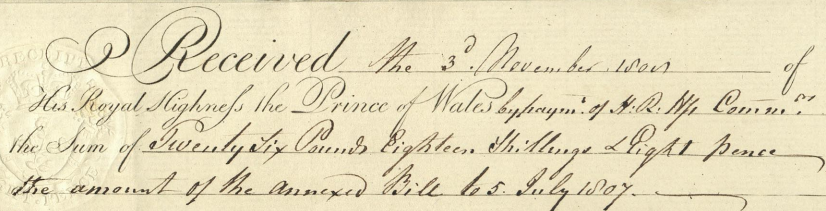 Received the 3d. November 1808 of
His Royal Highneſs the Prince of Wales by paymt. of H. R. Hs Commrs.
the Sum of Twenty Six Pounds Eighteen Shillings & Eight pence
the amount of the annexed Bill to 5 July 1807.
RECEIPT